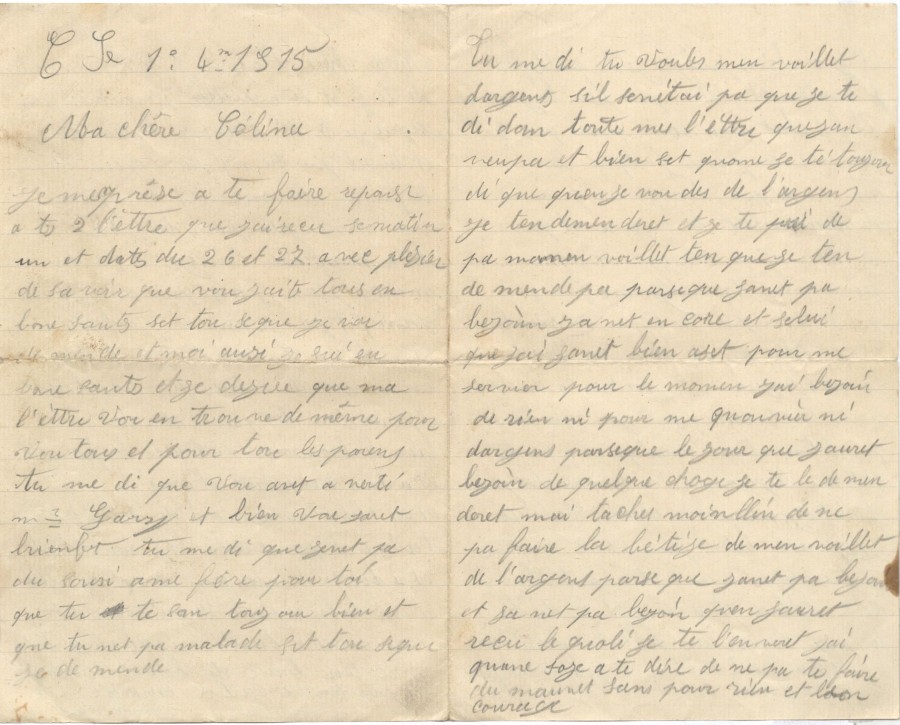 C Se 1° 4m 1915
Ma chére Célina
Je meprése a te faére reponse
a ts 2 l'éttre que jai recu se matin
un et dats du 26 et 27 avec plésier
de sa voir que vou saite tous en
bone sants set tou se que je vou
de mende et moi ausi je sui en
bone sants et je desire que ma
l'éttre vou en trouve de méme pour
vou tous et pour tou les parens
tu me di que vou avet a verti
mr Garz et bien vou faret
brienfot tu me di que janet pa
du sousi a me faére pour toi
que tu te san toujour bien et
que tu net pa malade set tou se que
je de mende
Tu me di tu voules men voillet
dargens sil senétai pa que je te
di dan toute mes l'éttre que jan
veu pa et bien set quome je té toujour
di que quan je voudes de l'argens
je ten demenderet et je te pri de
pa men voillet ten que je ten
de mende pa parseque janet pa
bezoin janet en core et selui
que jai janet bien aset pour me
servier pour le momen jai bezoin
de rien ni pour me ni
dargens parseque le jour que jauret
bezoin de quelque choze je te le demen
deret mai taches moin de ne
pa faire la bétize de men voillet
de l'argens parseque janet pa bezoin
et janet pa bezoin quen jauret
recu le je te l'enveret jai
quane soze a te dire de ne pa te faére
du mauvet sans pour rien et bon
courage